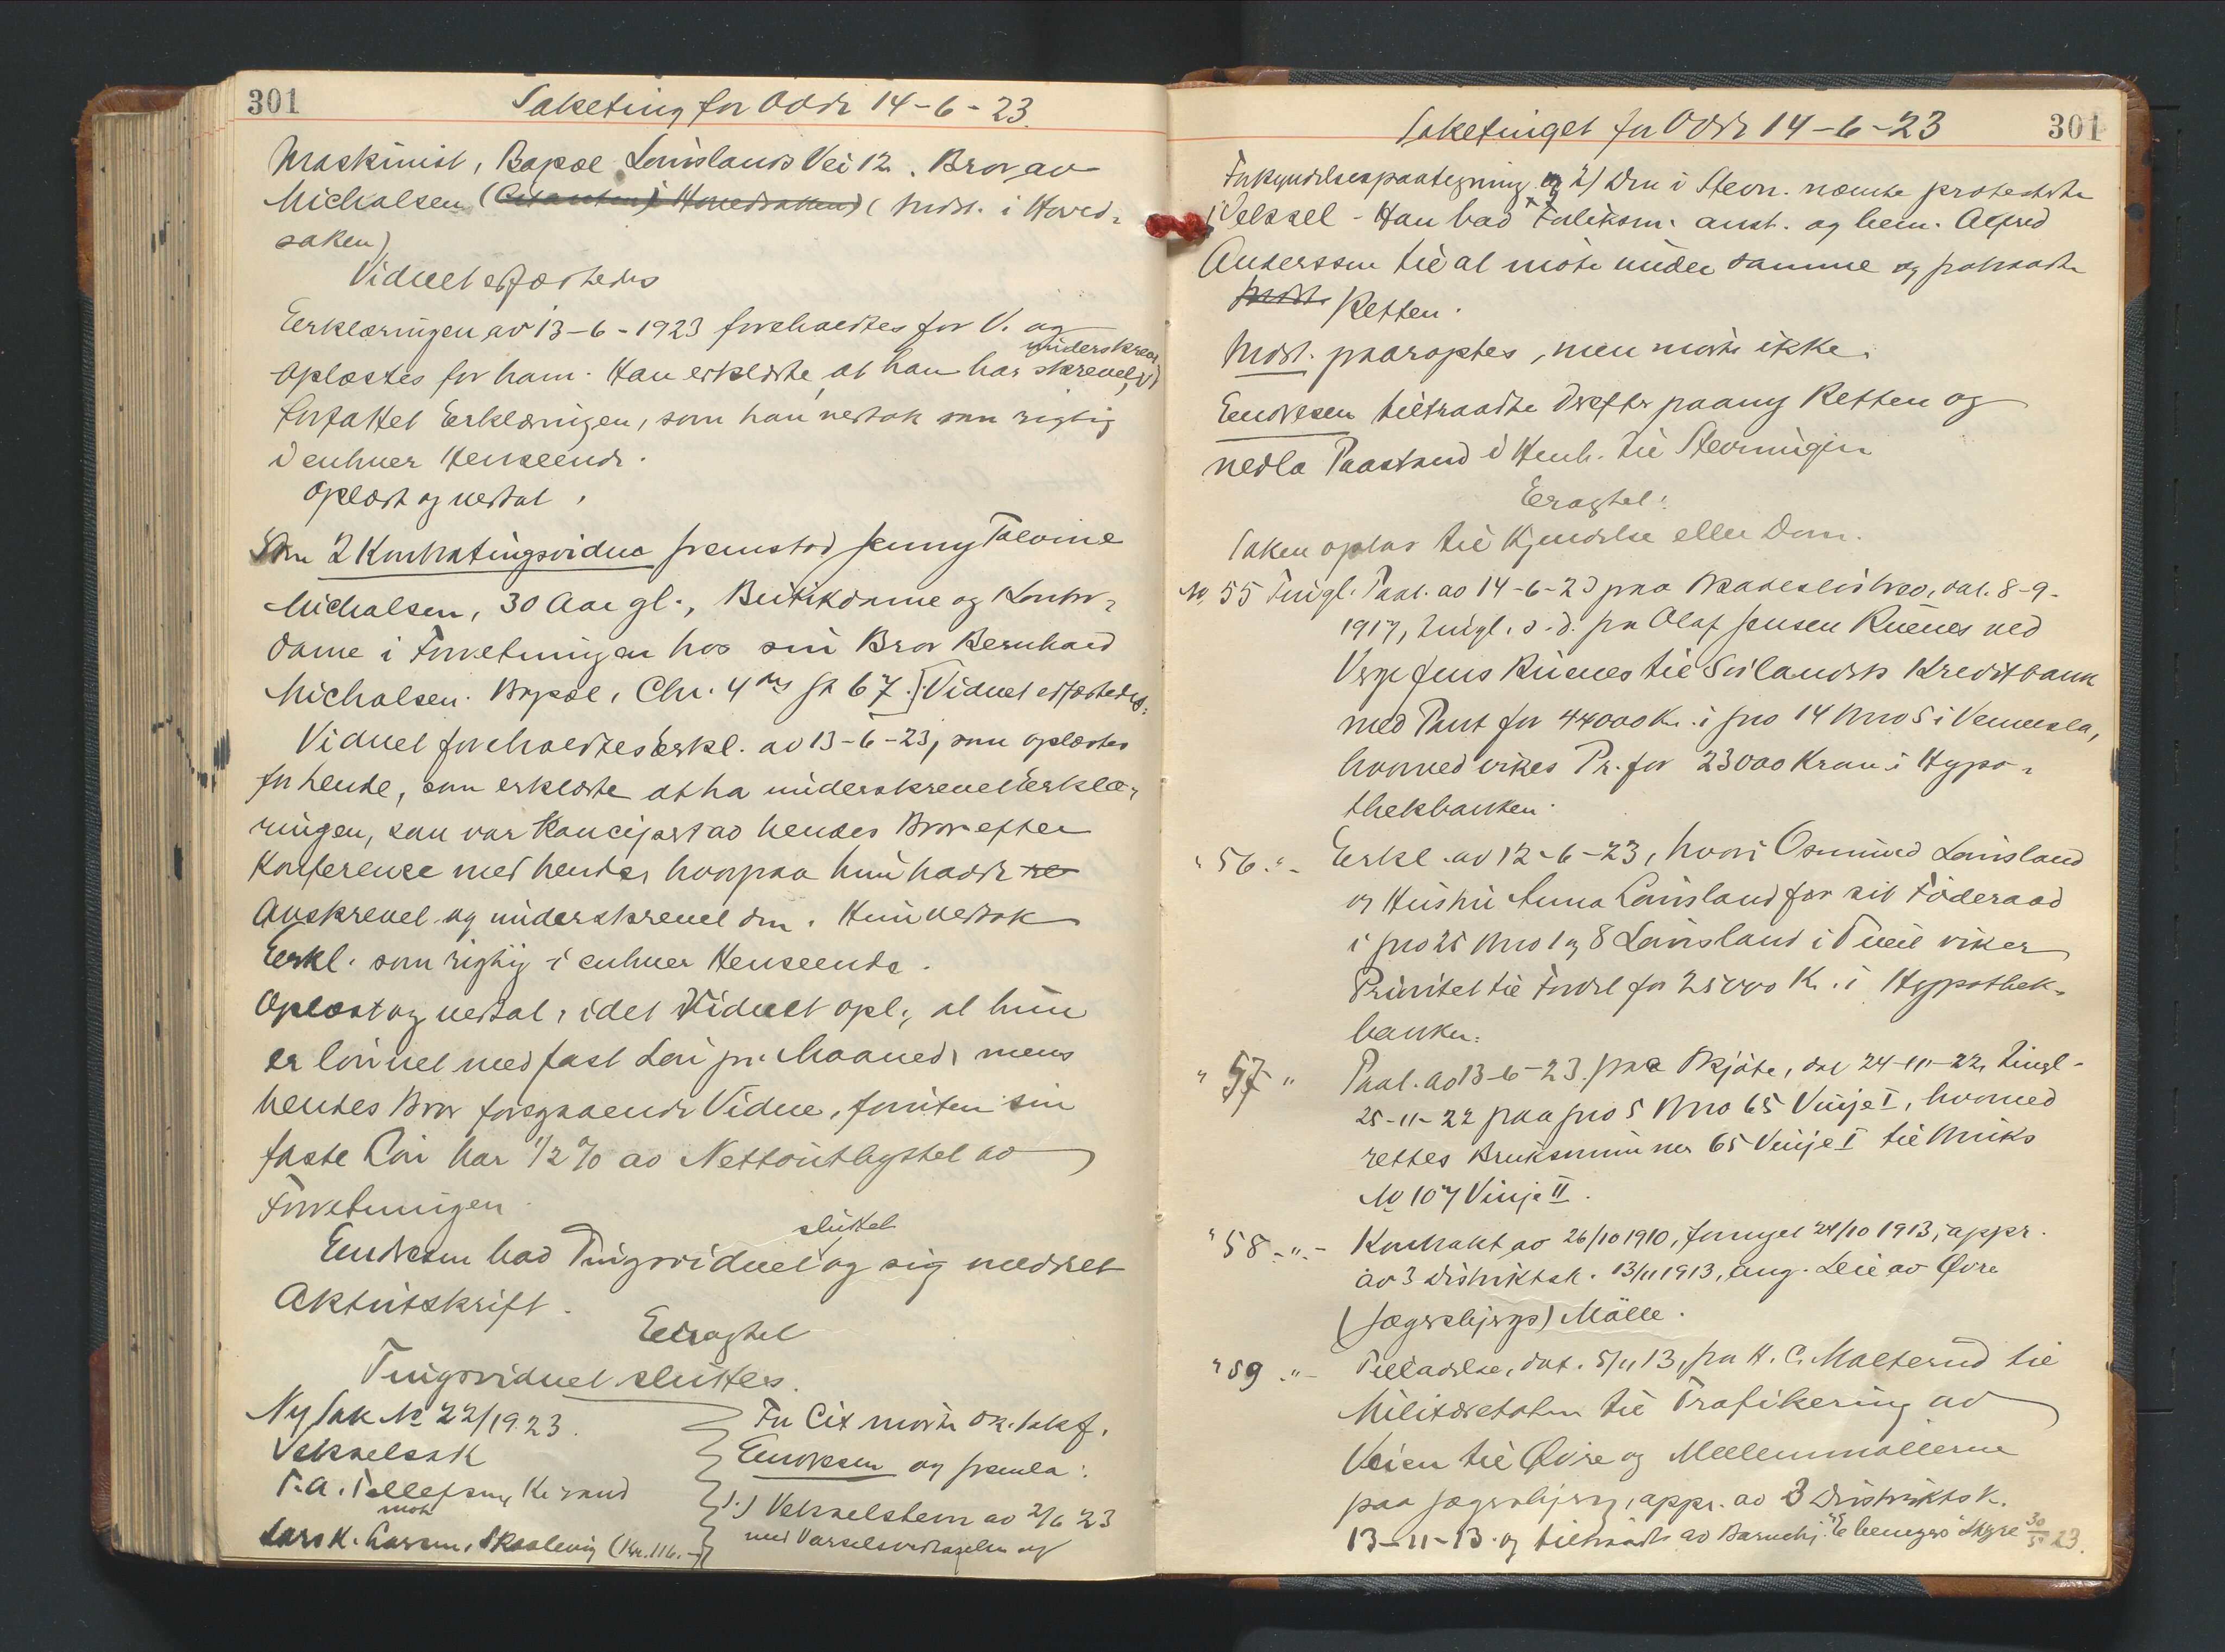 301
Saketing for Oddr 14-6-23.
Maskinist, Bopæl Lovislands Vei 12. Bror av
Michalsen (Citanten i Hovedsaken) (Indst. i Hoved-
saken)
Vidnet edfæstedes
Erklæringen av 13-6-1923 foreholdtes for V. og
underskrev
oplæstes for ham. Han erklærte, at han har skrevet,
forfattet Erklæringen, som han vedtok som rigtig
i enhver Henseende.
Oplæst og vedtat.
Som 2 Kontratingsvidne fremstod Jenny Talvine
Michalsen, 30 Aar gl., Butikdame og Kontor-
dame i Forretningen hos sin Bror Bernhard
Michalsen. Bopæl, Chr. 4des gt 67. [Vidnet edfæstedes.
Vidnet foreholdtes Erkl. av 13-6-23, som oplæstes
for hende, som erklærte at ha underskrevet Erklæ-
ringen, som var Koncipert av hendes Bror efter
Konference med hende, hvorpaa hun hadde re
avskrevet og underskrevet den. Hun vedtok
Erkl. som rigtig i enhver Henseende.
Oplæst og vedtat, idet Vidnet opl., at hun
er lønnet med fast Løn pr. Maaned, mens
hendes Bror foregaaende Vidne, foruten sin
faste Løn har 1/2 % av Nettoutbyttet av
Forretningen.
sluttet
Endresen bad Tingsvidnet og sig meddelt
Aktutskrift.
Eragtet
Tingsvidnet sluttes.
Ny Sak No 22/1923.
Vekselsak
T.A. Tellefsen, Kr.sand
mot
Lars K. Larsen, Skaalevig (Kr. 116.-)
For Cit møtte o.r. sakf.
Endresen og fremla:
1.) Vekselstevn av 2/6 23
med Varselsvedtagelse og
Saketinget for Oddr 14-6-23
301
Forkyndelsespaategning og 2) Den i Stevn. nævnte protesterte
Veksel - Han bad Fuldm. anst. og bem. Alfred
Anderssen til at møte under samme og fratraadte
Indst. Retten.
Indst. paaroptes, men møtte ikke.
Endresen tiltraadte derefter paany Retten og
nedla Paastand i Henh. til Stevningen
Eragtet:
Saken optas til Kjendelse eller Dom.
No 55 Tingl. Paat. av 14-6-23 paa Skadesløsbrev, dat. 8-9-
1917, tingl. s.d. fra Olaf Jensen Ruenes ved
Verge Jens Ruenes til Sørlandets Kreditbank
med Pant for 44000 Kr. i gno 14 bno 5 i Vennesla,
hvorved vikes Pr. for 23000 Kroner i Hypo-
thekbanken.
" 56 "- Erkl. av 12-6-23, hvori Osmund Lovisland
og Hustru Anna Lovisland for sit Föderaad
i gno 25 bno 1 og 8 Lovisland i Tveit viker
Prioritet til Fordel for 25000 Kr. i Hypothek-
banken.
" 57 " Paat. av 13-6-23 paa Skjøte, dat 24-11-22, tingl-
25-11-22 paa gno 5 bno 65 Vinje I, hvorved
rettes Bruksnummer 65 Vinje I til bruks
No 107 Vinje II.
" 58 -"- Kontrakt av 26/10 1910, fornyet 24/10 1913, appr.
av 3 Distriktsk. 13/11 1913, ang. Leie av Øvre
(Jægersbjergs) Mölle.
" 59 "- Tilladelse, dat. 5/11 13, fra H. C. Malterud til
Militæretaten til Trafikering av
Veien til Øvre og Mellemmøllerne
paa Jægersbjerg, appr. av 3 Distriktsk.
13-11-13 og tiltraadt av 30/5 23.